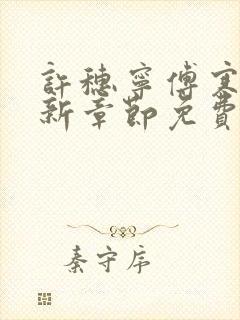 許穗寧傅寒
新章節免費
秦守序